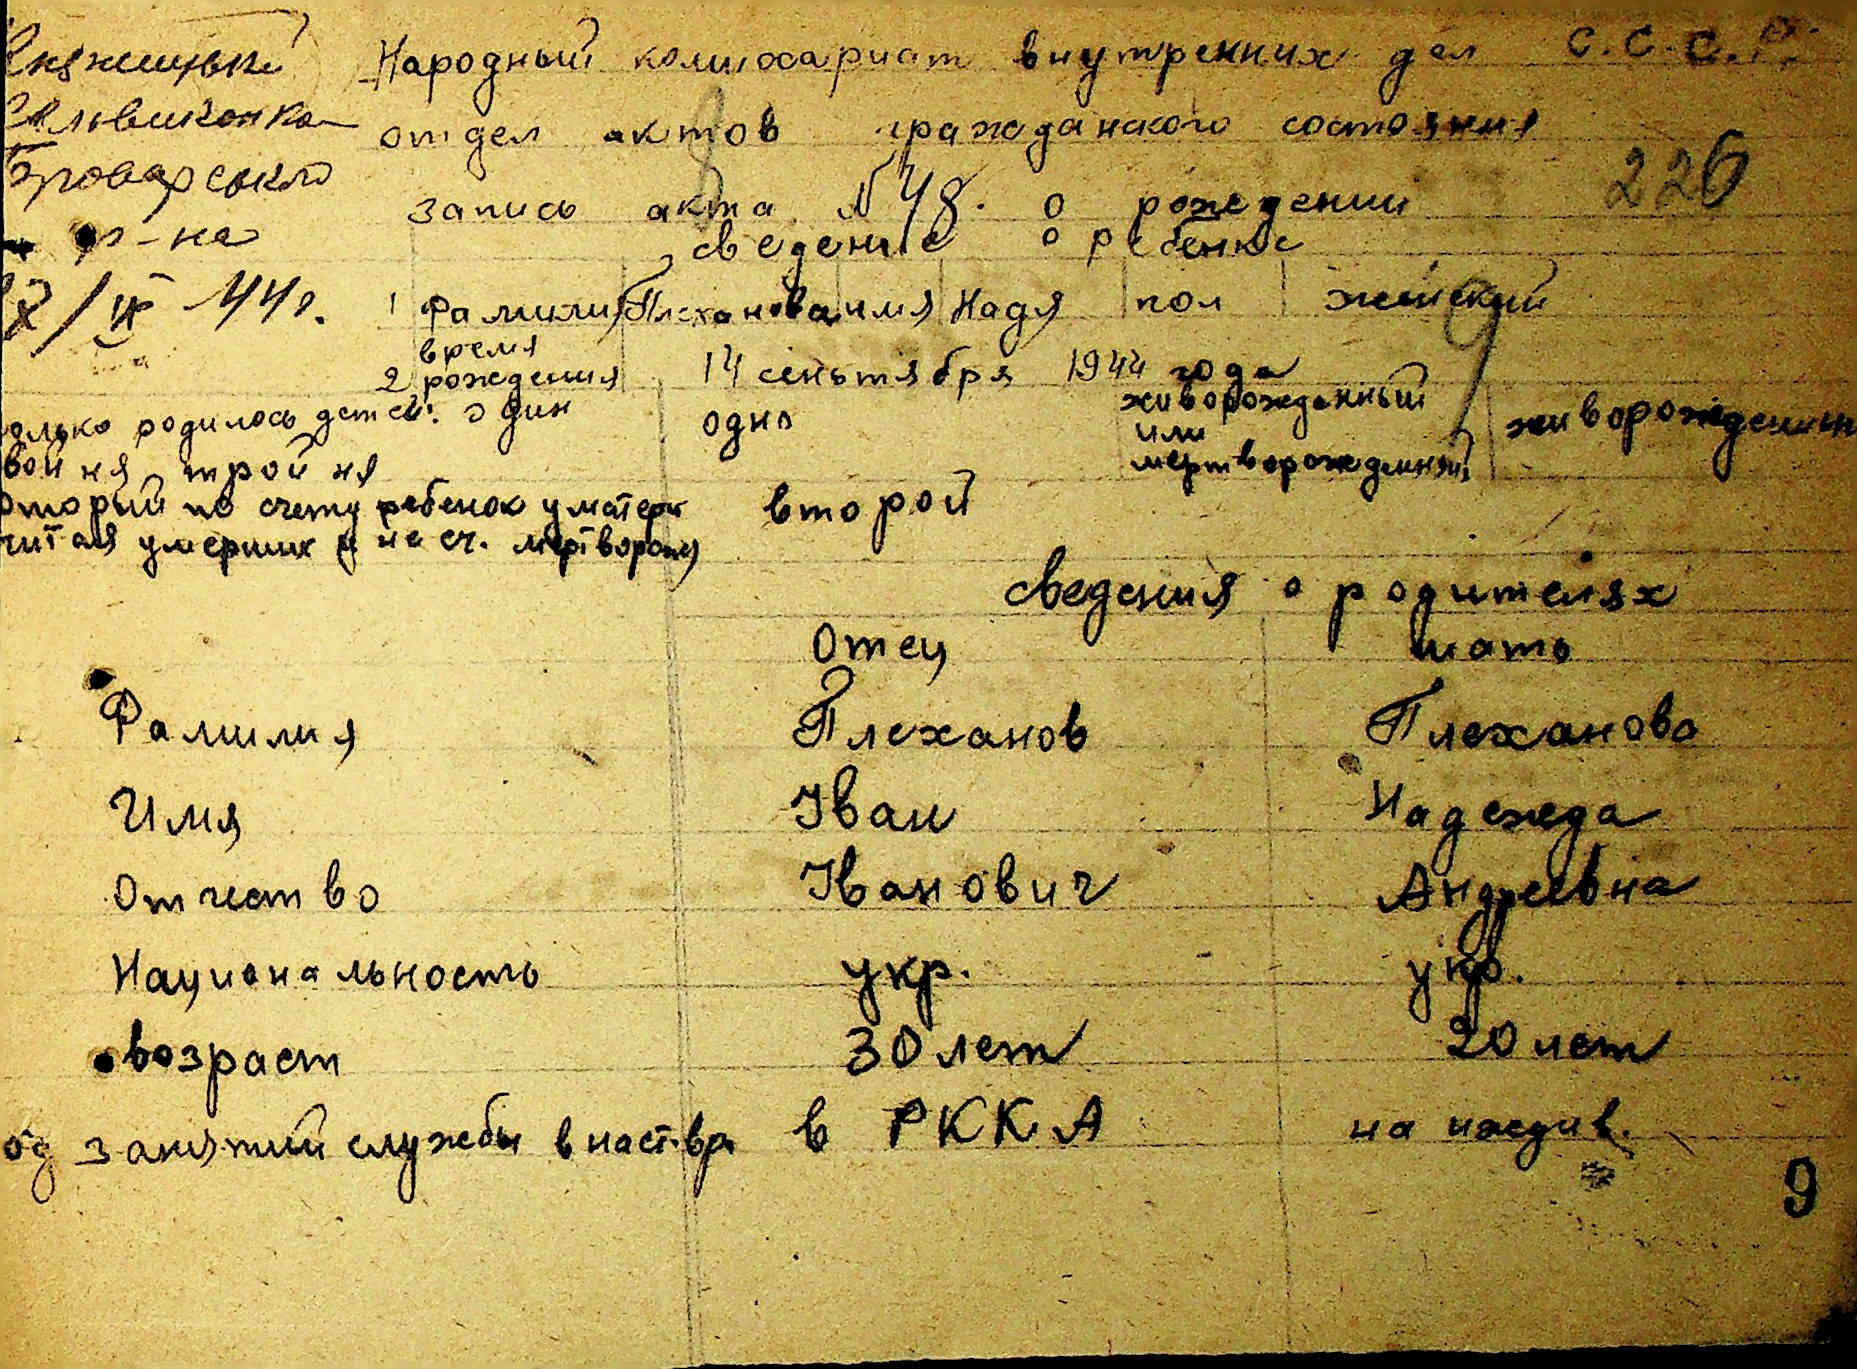 Народный комисариат внутренних дел С.С.С.Р.
отдел актов гражданского состояния
226
Броварського
р-на
запись акта №48. о рождении
сведение о ребенке
/IX 44г.
1 Фамилия Плеханова имя Надя пол женский
время
2 рождения 14 сеньтября 1944 года
олько родилось детей: один одно живорожденный
или
мертворожденный живорожденный
войня, тройня
оторый по счету ребенок у матери второй
читая умерших и не сч. мертворож)
сведения о родителях
Отец мать
Фамилия Плеханов Плеханова
Имя Іван Надежда
Отчество Іванович Андреевна
Национальность укр. укр.
возраст 30 лет 20 лет
од занятий службы в наст.вр в РККА на иждив.
9